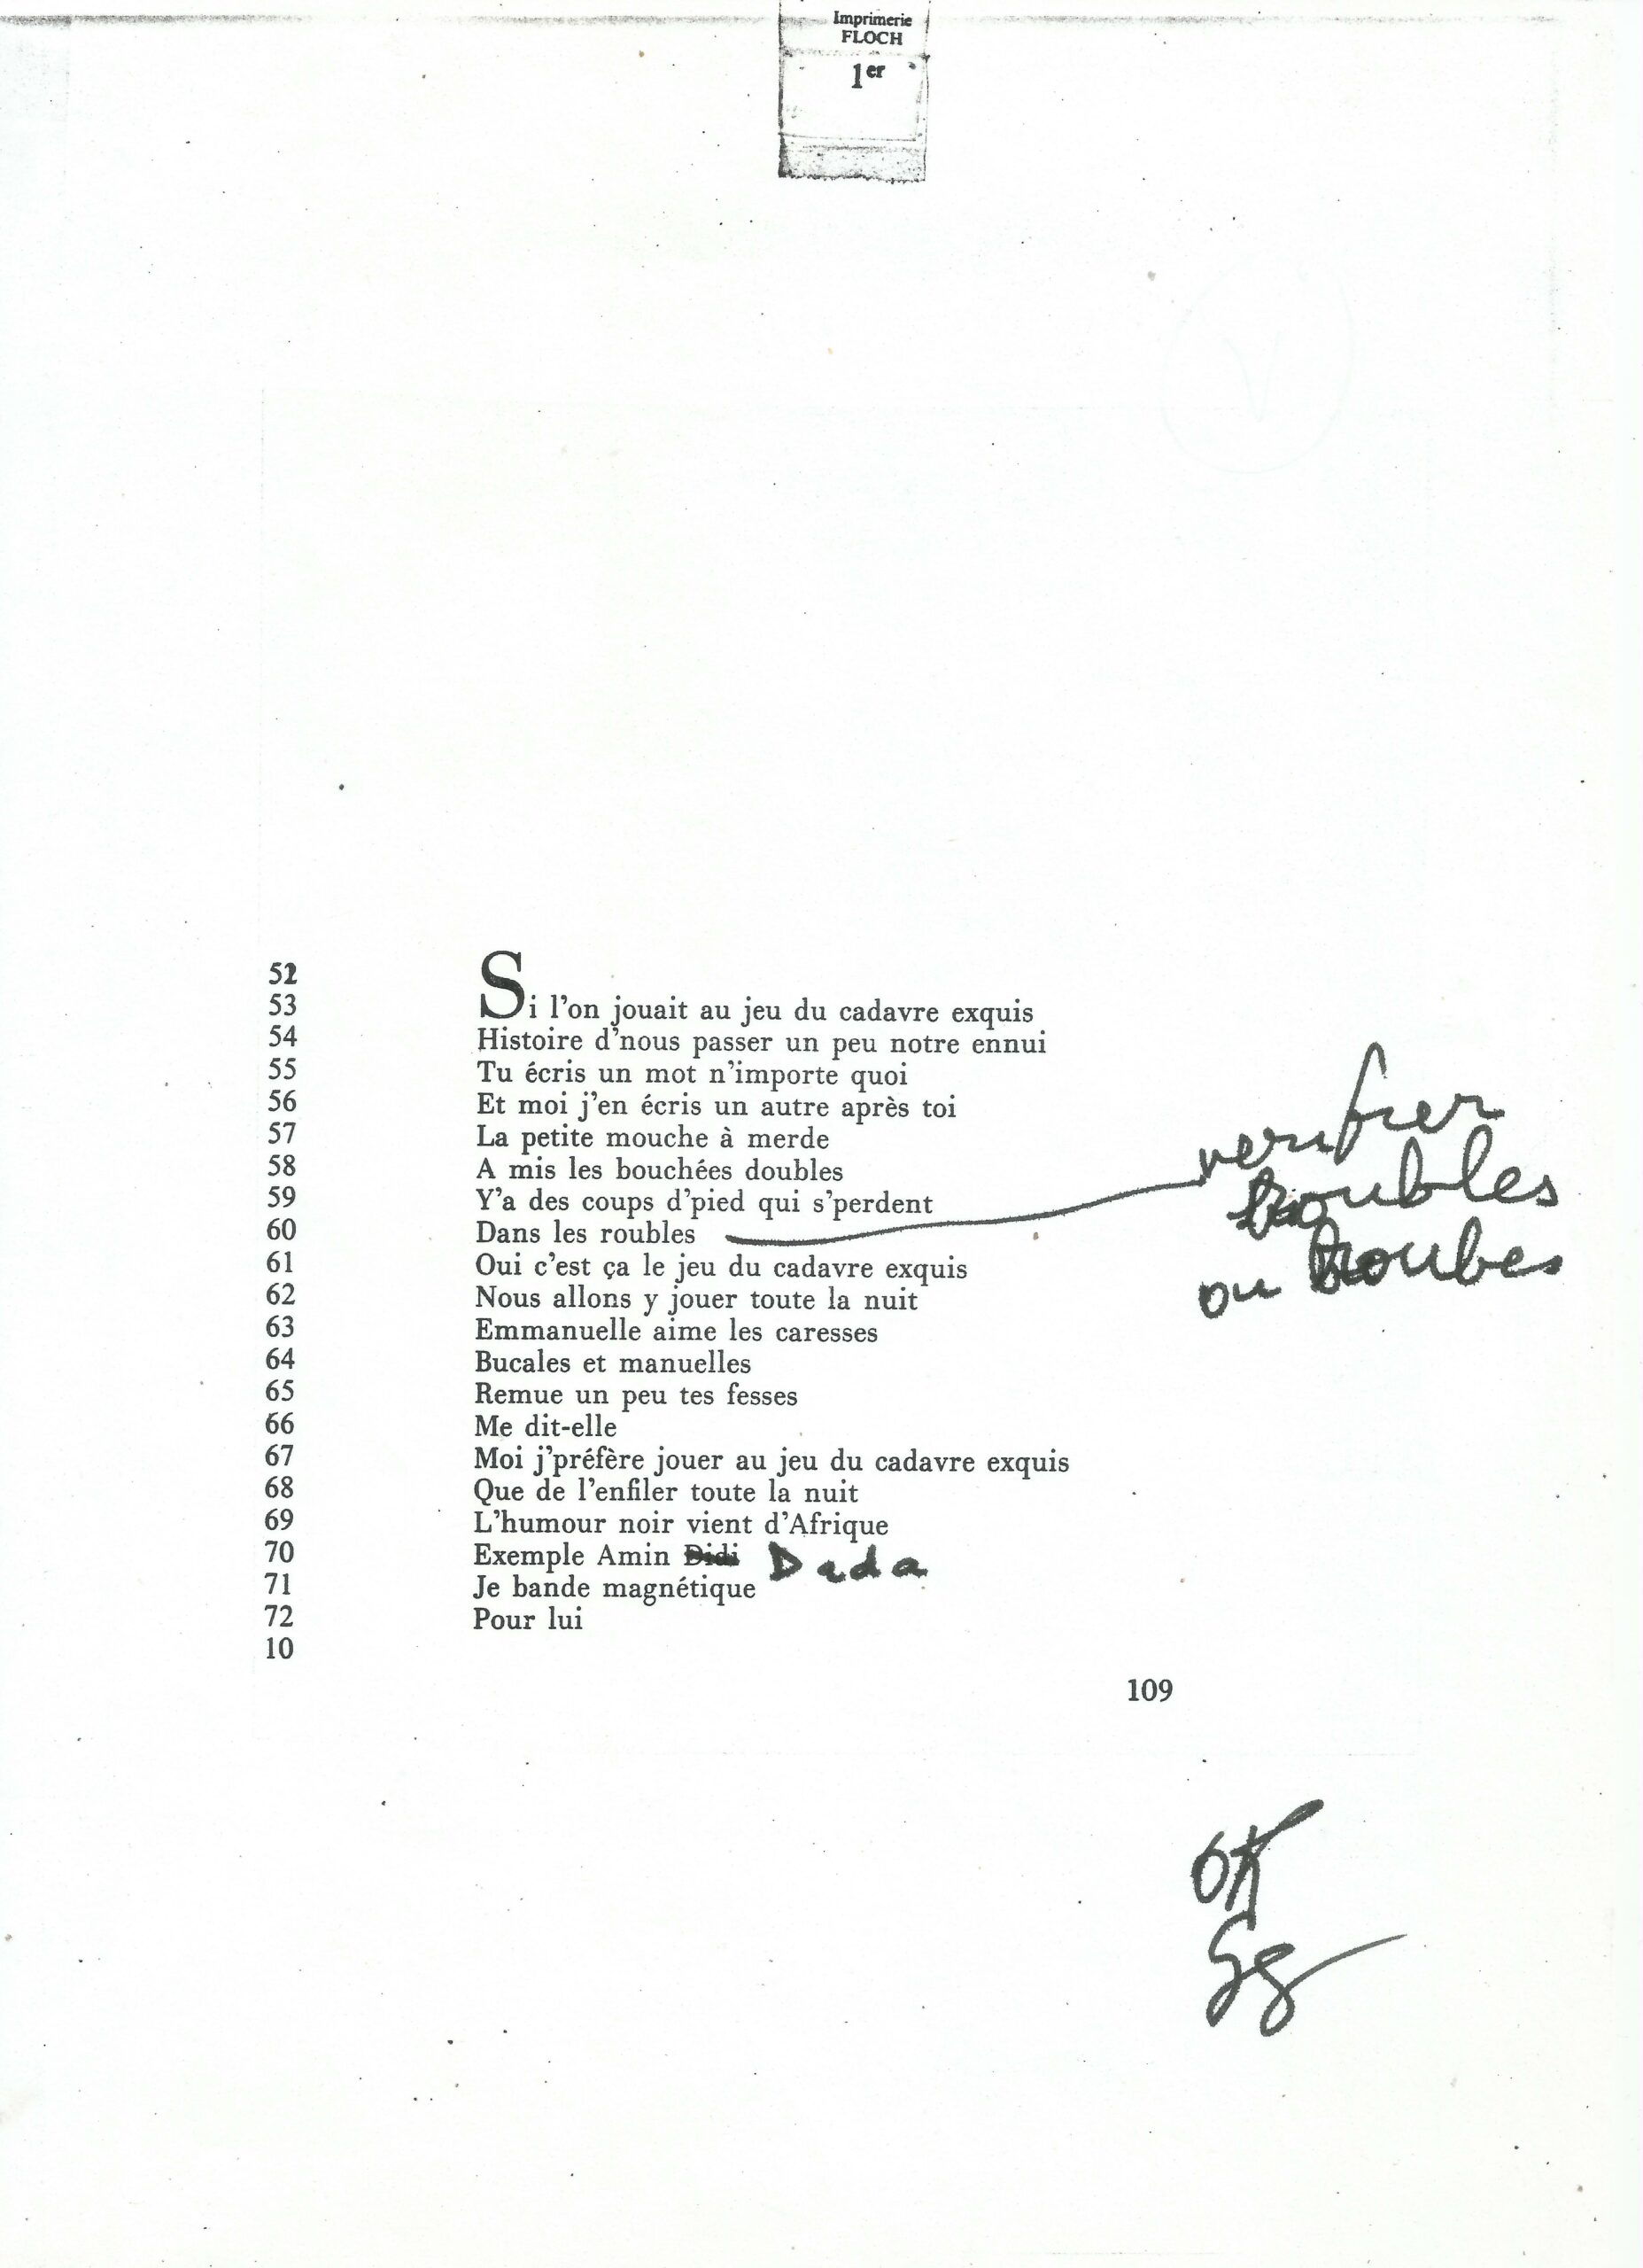 Imprimerie
FLOCH
1er
52
53 Si l'on jouait au jeu du cadavre exquis
54 Histoire d'nous passer un peu notre ennui
55 Tu écris un mot n'importe quoi
56 Et moi j'en écris un autre après toi
57 La petite mouche à merde
58 A mis les bouchées doubles
59 Y'a des coups d'pied qui s'perdent
60 Dans les roubles
verifier
troubles
ou troubes
61 Oui c'est ça le jeu du cadavre exquis
62 Nous allons y jouer toute la nuit
63 Emmanuelle aime les caresses
64 Bucales et manuelles
65 Remue un peu tes fesses
66 Me dit-elle
67 Moi j'préfère jouer au jeu du cadavre exquis
68 Que de l'enfiler toute la nuit
69 L'humour noir vient d'Afrique
70 Exemple Amin Didi Dada
71 Je bande magnétique
72 Pour lui
10
109
OK
Sg